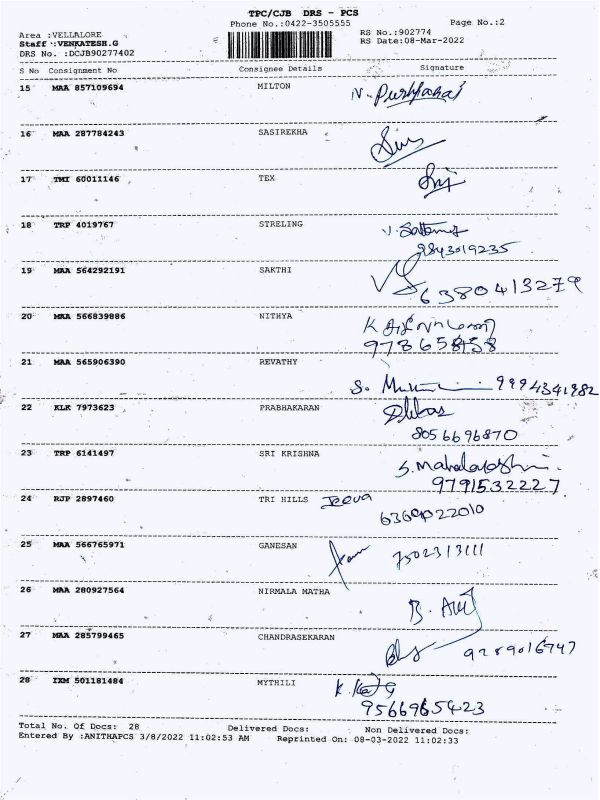 TPC/CJB DRS - PCS
Phone No.:0422-3505555 Page No.:2
Area :VELLALORE RS No.:902774
Staff :VENKATESH.G RS Date:08-Mar-2022
DRS No. :DCJB90277402
S No Consignment No Consignee Details Signature
15 MAA 857109694 MILTON
16 MAA 287784243 SASIREKHA
17 TMI 60011146 TEX
18 TRP 4019767 STRELING
9843019235
19 MAA 564292191 SAKTHI
6380413279
20 MAA 566839886 NITHYA
21 MAA 565906390 REVATHY
9994341982
22 KLK 7973623 PRABHAKARAN
8056696870
23 TRP 6141497 SRI KRISHNA
9791532227
24 RJP 2897460 TRI HILLS Jeeva
25 MAA 566765971 GANESAN 7502313111
26 MAA 280927564 NIRMALA MATHA
27 MAA 285799465 CHANDRASEKARAN
28 IXM 501181484 MYTHILI
9566965423
Total No. Of Docs: 28 Delivered Docs: Non Delivered Docs:
Entered By :ANITHAPCS 3/8/2022 11:02:53 AM Reprinted On: 08-03-2022 11:02:33